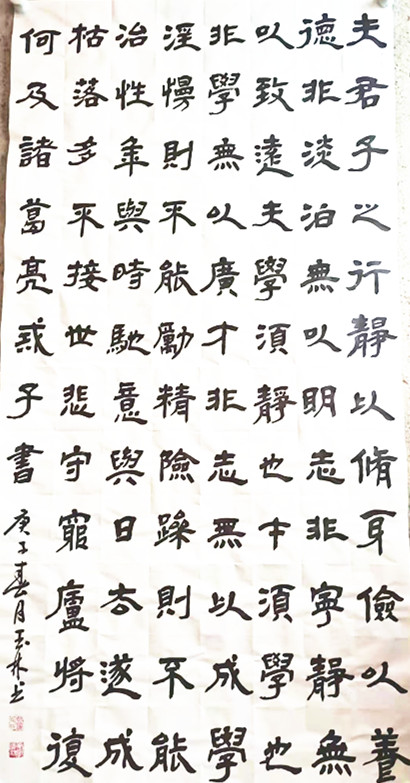 夫君子之行靜以脩身儉以養
德非淡泊無以明志非寧靜無
以致遠夫學須靜也才須學也
非學無以廣才非志無以成學
淫慢則不能勵精險躁則不能
治性年與時馳意與日去遂成
枯落多不接世悲守窮廬將復
何及諸葛亮戒子書
庚子春月玉林书